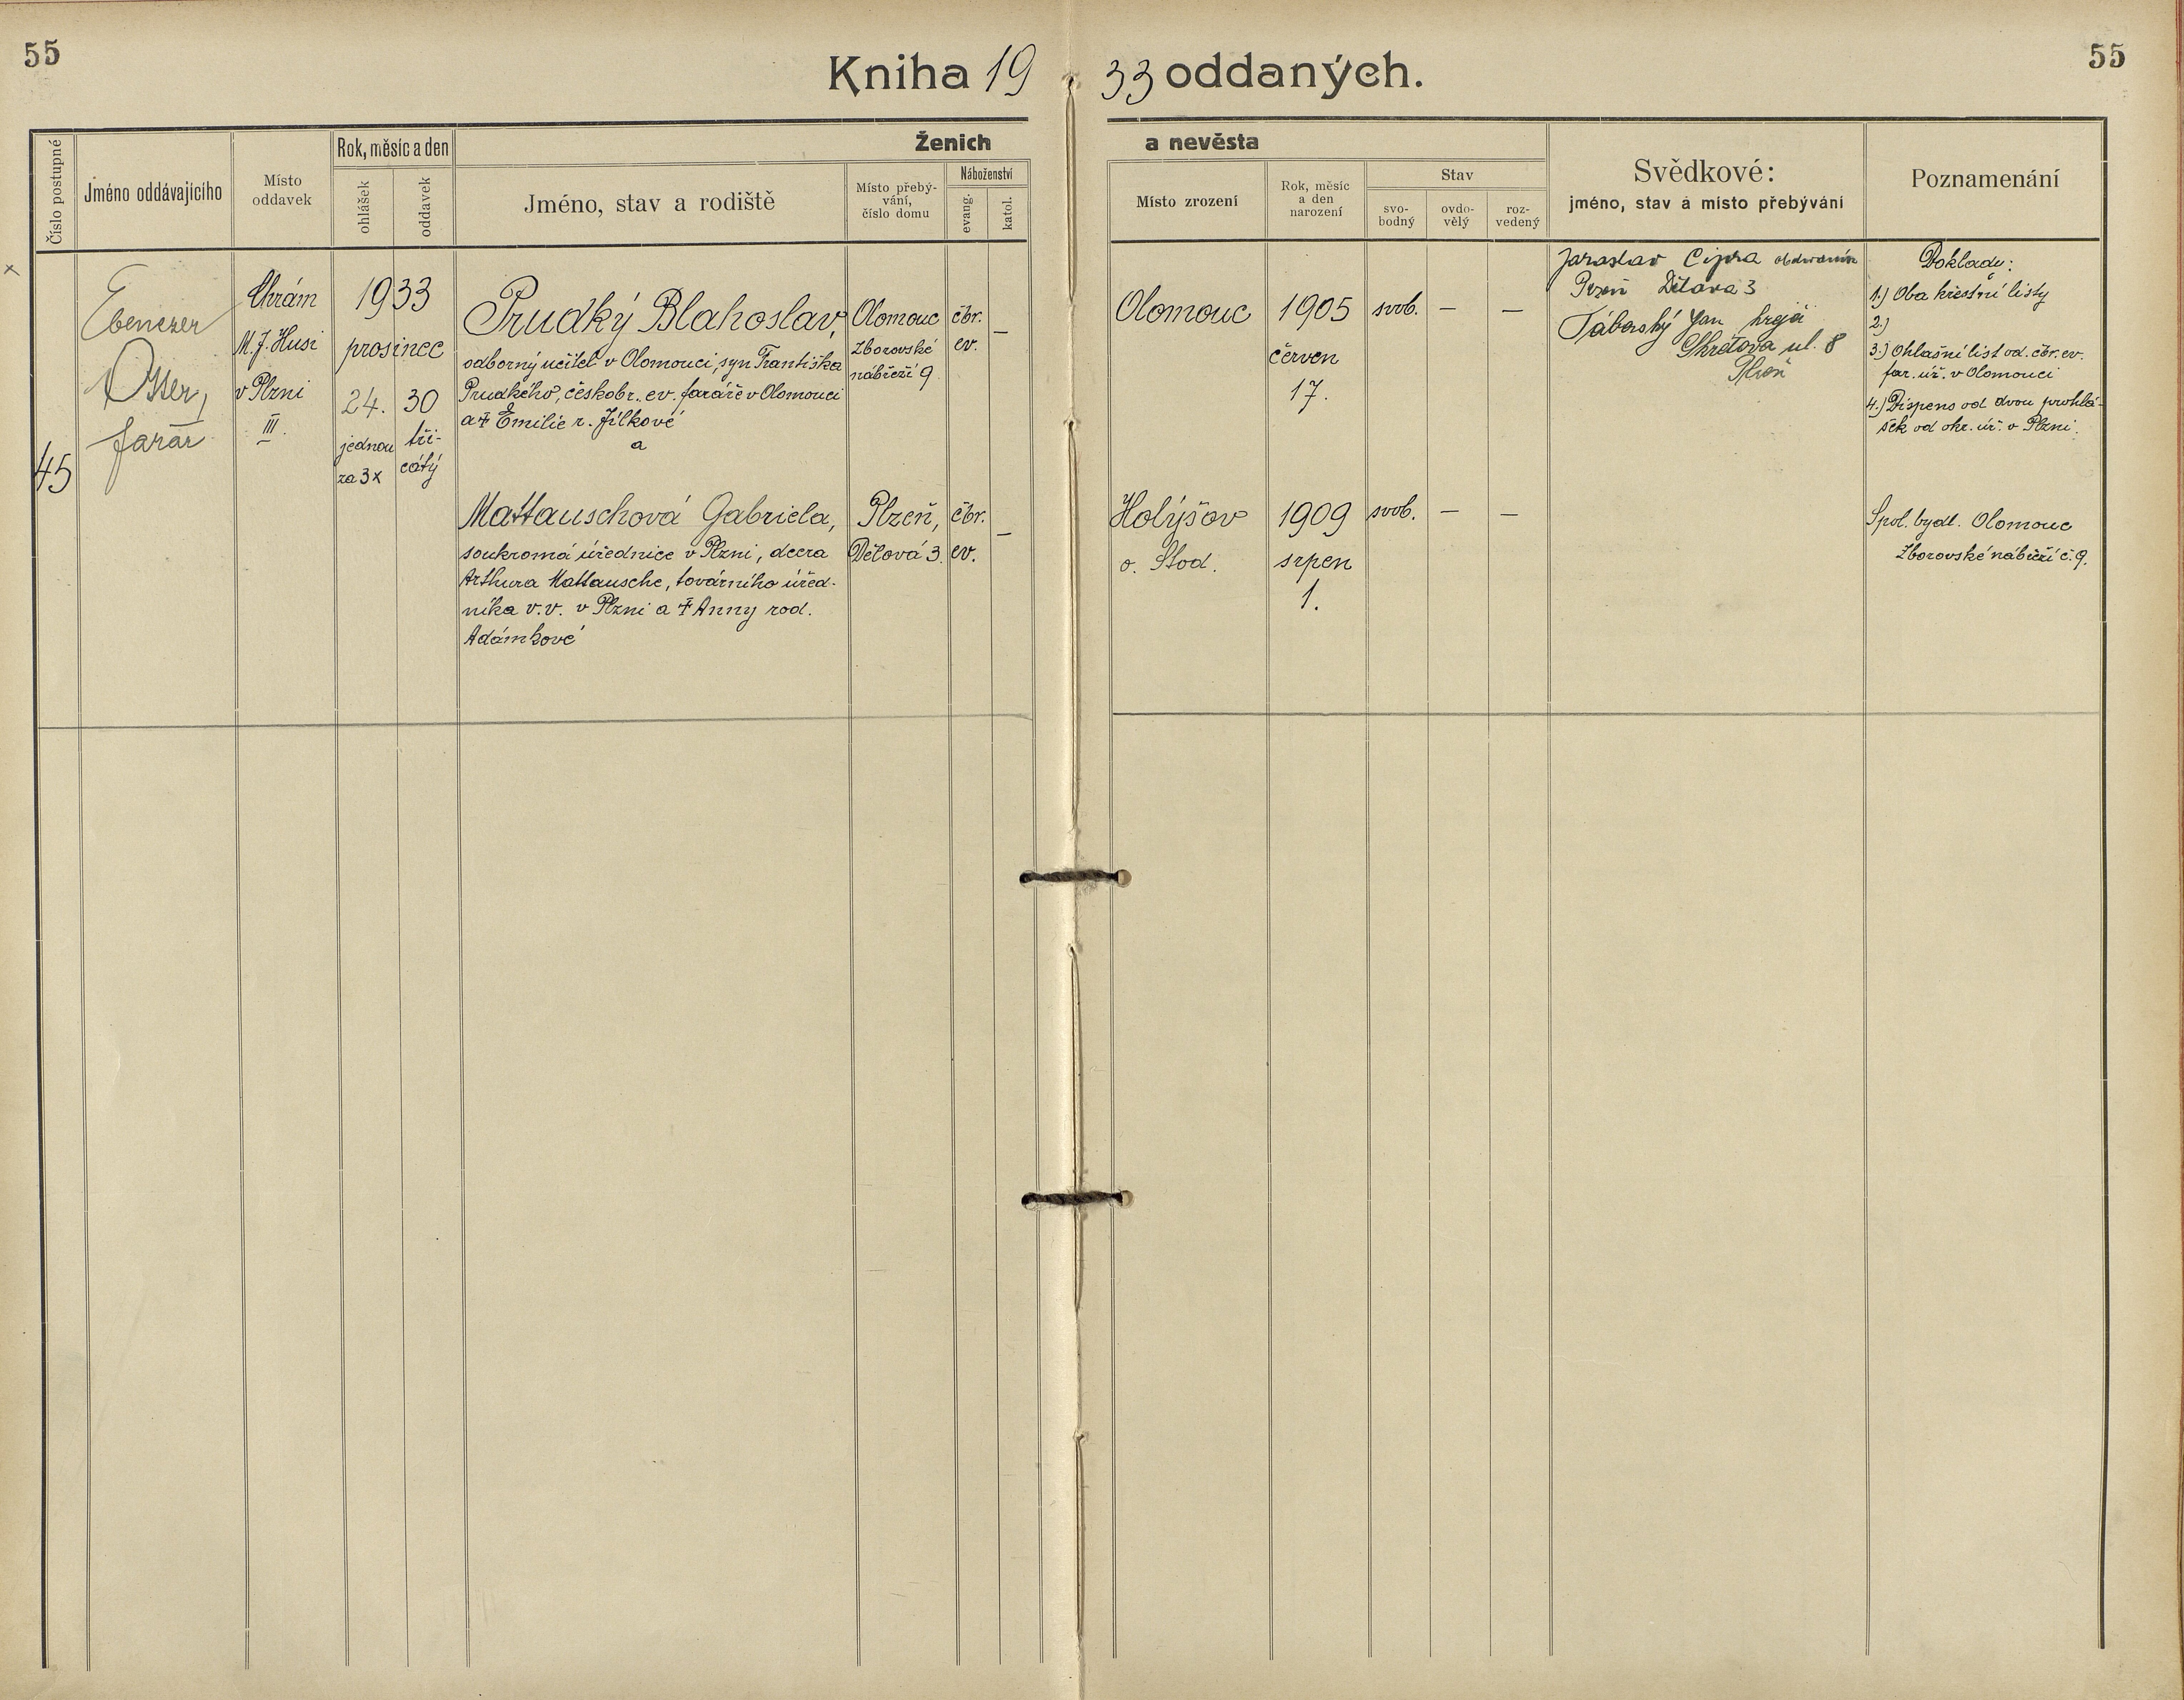 55
55
Kniha 1933 oddaných.
Číslo postupné
Jméno oddávajícího
Místo
oddavek
Rok, měsíc a den
ohlášek
oddavek
Ženich
Jméno, stav a rodiště
Místo přebý-
vání,
číslo domu
Náboženství
evang.
katol.
a nevěsta
Místo zrození
Rok, měsíc
a den
narození
Stav
svo-
bodný
ovdo-
vělý
roz-
vedený
Svědkové:
jméno, stav a místo přebývání
Poznamenání
x
45
Ebenezer
Otter,
farář
Chrám
M. J. Husi
v Plzni
III.
1933
prosinec
24.
jednou
za 3x
30
tři-
cátý
Prudký Blahoslav,
odborný učitel v Olomouci, syn Františka
Prudkého, českobr. ev. faráře v Olomouci
a † Emilie r. Jílkové
a
Olomouc
Zborovské
nábřeží 9
čbr.
ev.
—
Olomouc
1905
červen
17.
svob.
—
—
Jaroslav Cipra
Plzeň Dělová 3
Táborský Jan krejčí
Skrétova ul. 8
Plzeň
Doklady:
1.) Oba křestní listy
2.)
3.) Ohlašní list od. čbr. ev.
far. úř. v Olomouci
4.) Dispens od dvou prohlá-
šek od okr. úř. v Plzni.
Mattauschová Gabriela,
soukromá úřednice v Plzni, dcera
Arthura Mattausche, továrního úřed-
níka v.v. v Plzni a † Anny rod.
Adámkové
Plzeň,
Dělová 3.
čbr.
ev.
—
Holýšov
o. Stod.
1909
srpen
1.
svob.
—
—
Spol. bydl. Olomouc
Zborovské nábřeží č. 9.